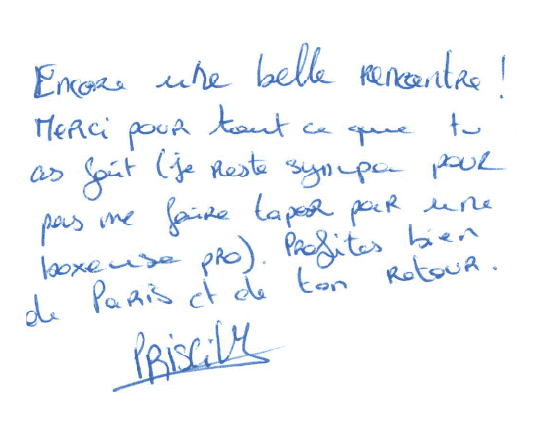 Encore une belle rencontre !
Merci pour tout ce que tu
as fait (je reste sympa pour
pas me faire taper par une
boxeuse pro). Profites bien
de Paris et de ton retour.
PRISCILLA